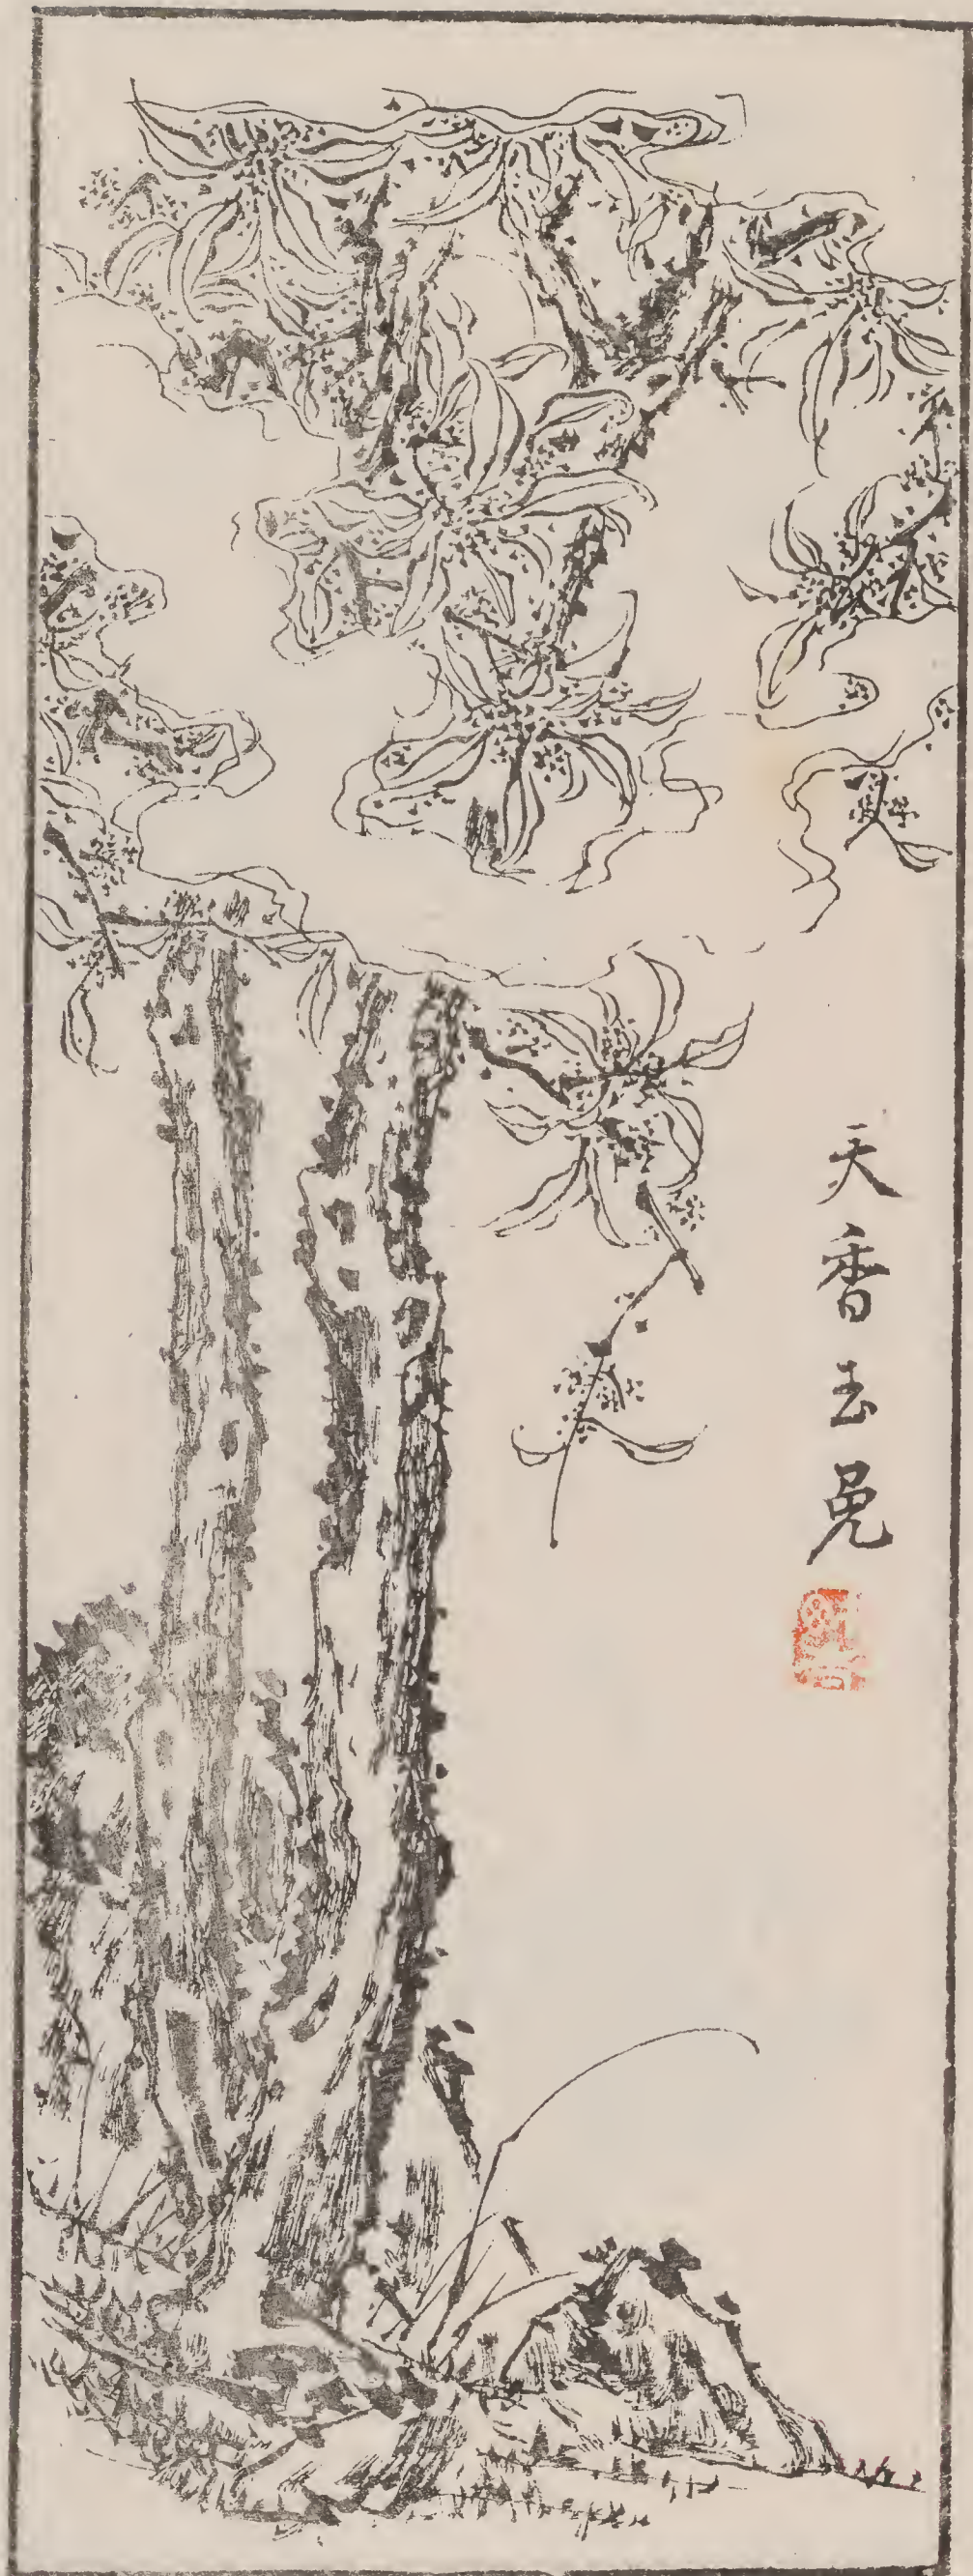 天香玉兔